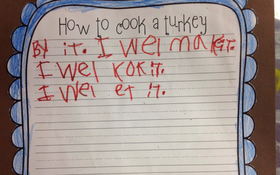 How to cook a turkey
By it. I wel makit.
I wel kok it.
I wel et it.